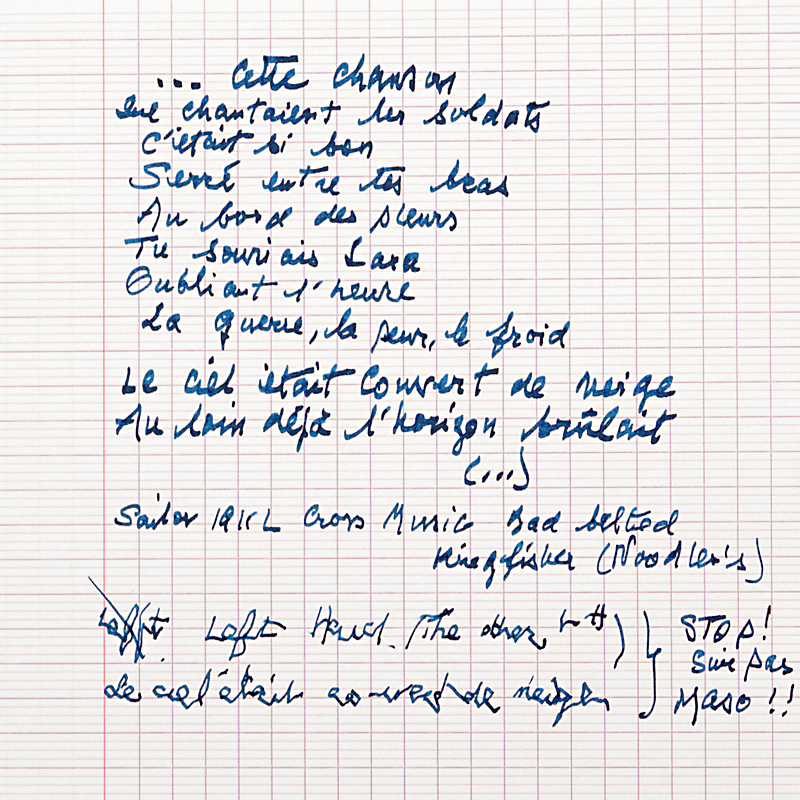 ... Cette chanson
Que chantaient les soldats
C'était si bon
Serré entre tes bras
Au bord des pleurs
Tu souriais Lara
Oubliant l'heure
La guerre, la peur, le froid
Le ciel était Couvert de neige
Au loin déjà l'horizon brûlait
(...)
Sailor 14K L Cross Music Bad belted
Kingfisher (Noodler's)
Left Hand. (The other L-H)
Le ciel était couvert de neige
STOP!
Suis pas
Maso !!